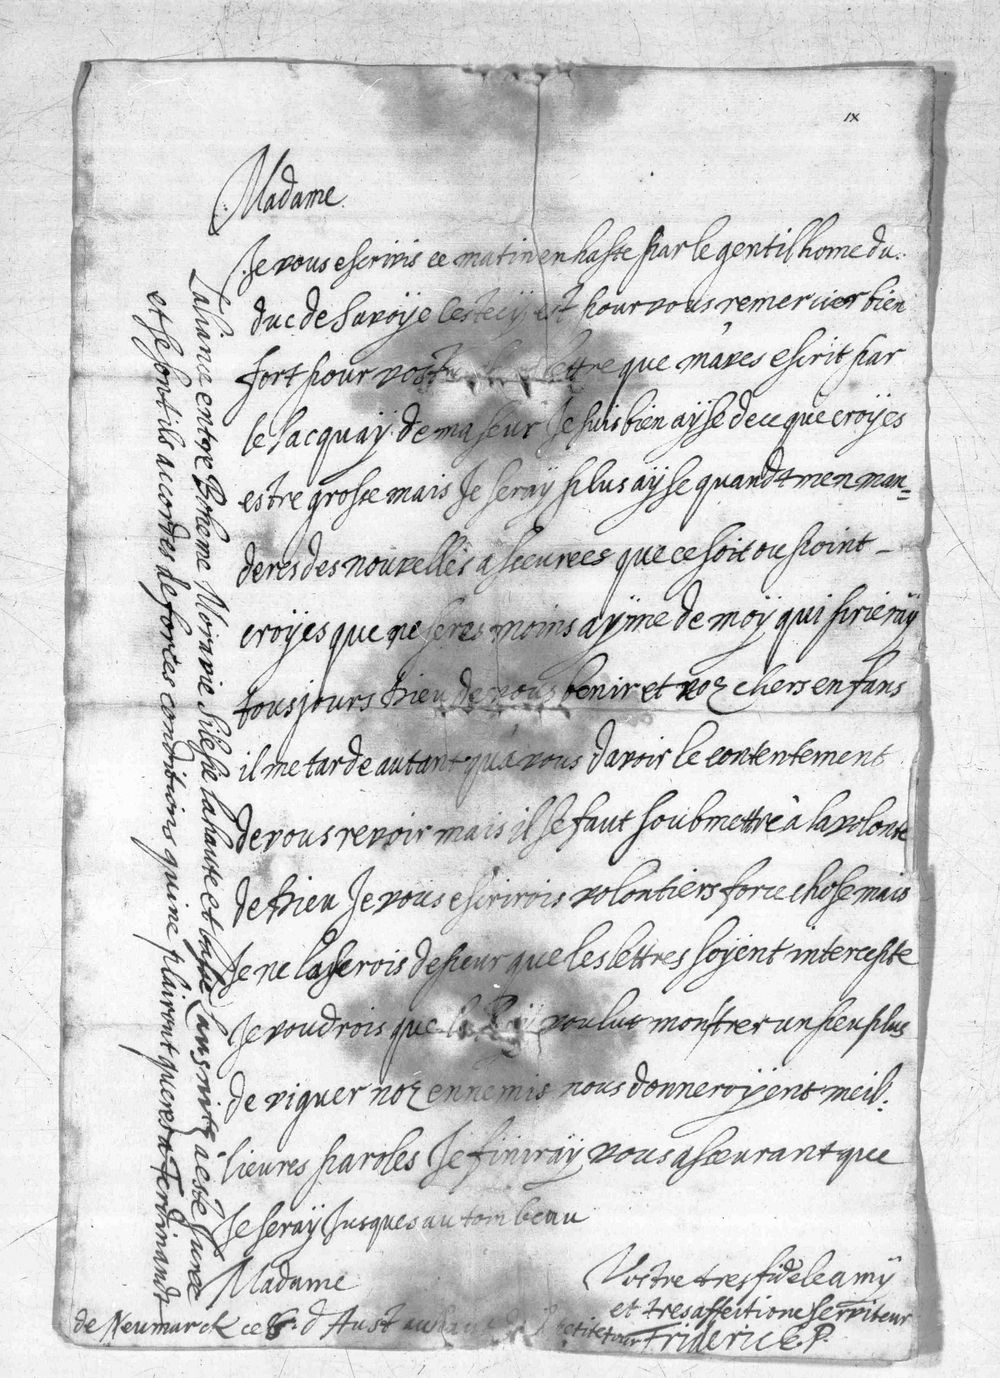 IX
Madame
Je vous escrivis ce matin en haste par le gentilhome du
duc de Savoÿe cestecÿ est pour vous remercier bien
fort pour vostre lettre que m'aves escrit par
le lacquaÿ de ma seur Je suis bien aÿse de ce que croÿes
estre grosse mais Je seraÿ plus aÿse quand m'en man=
deres des nouvelles asseurees que ce soit ou point
croÿes que ne seres moins aÿmee de moÿ qui prieraÿ
tousjours Dieu de vous benir et noz chers enfans
il me tarde autant qu'a vous d'avoir le contentement
de vous revoir mais il se faut soubmettre à la volonte
de Dieu Je vous escrirois volontiers force chose mais
Je ne l'aserois de peur que les lettres soÿent intercepte
Je voudrois que le Roÿ voulut monstrer un peu plus
de viguer noz ennemis nous donneroÿent meil-
lieures paroles Je finiraÿ vous asseurant que
Je seraÿ Jusques au tombeau
Madame
Vostre tresfidele amÿ
et tresaffectioné serviteur
Frideric P.
de Neumarck ce d'Aust
petite tour
La hiance entre Boheme Moravie Silesie la haute et basse Lausnitz a este Juree
et se sont ils accordes de forces conditions qui ne plairont gueres a Ferdinandt